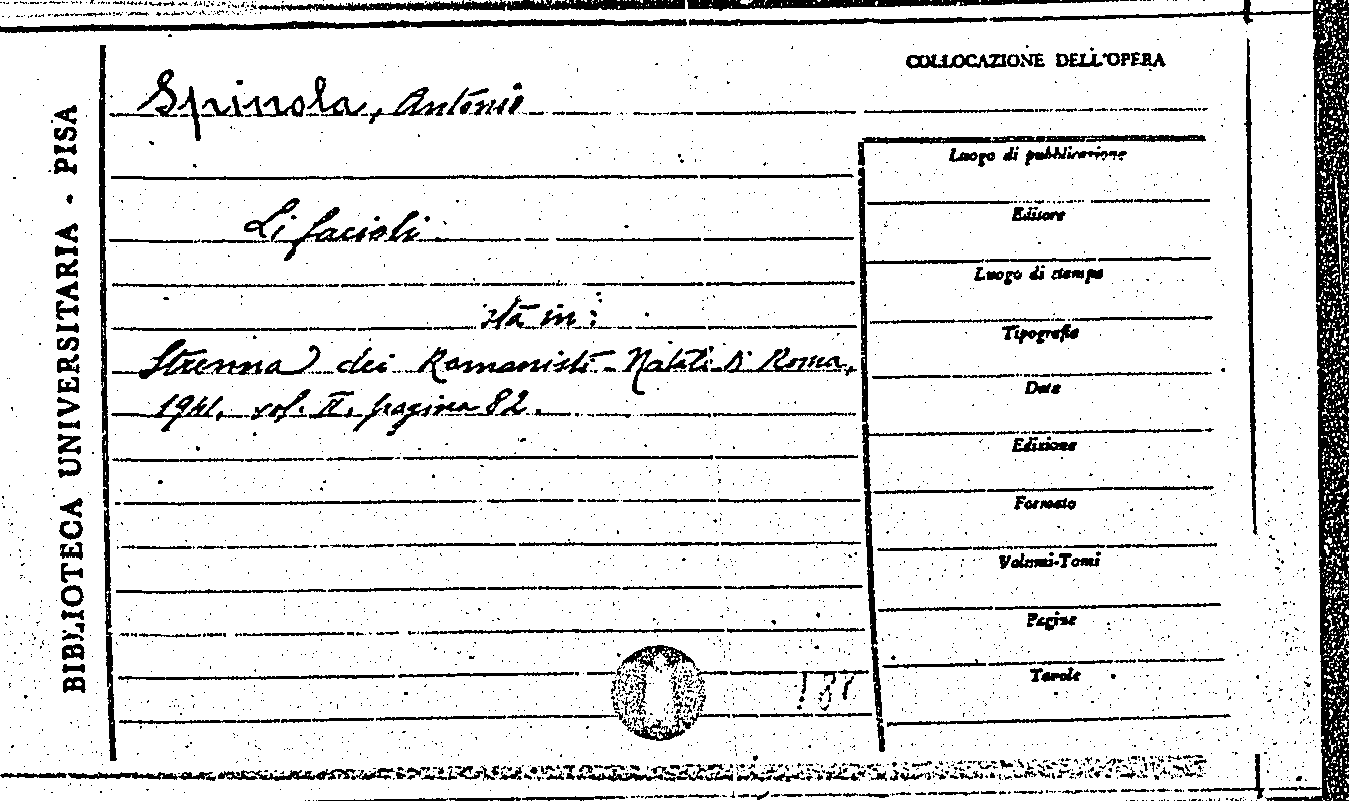 COLLOCAZIONE DELL'OPERA
Spinola, Antonio
BIBLIOTECA UNIVERSITARIA - PISA
Li facioli
sta in:
Strenna dei Romanisti - Natale di Roma,
1941, vol. II, pagina 82.
Luogo di pubblicazione
Editore
Luogo di stampa
Tipografia
Data
Edizione
Formato
Volumi-Tomi
Pagine
Tavole